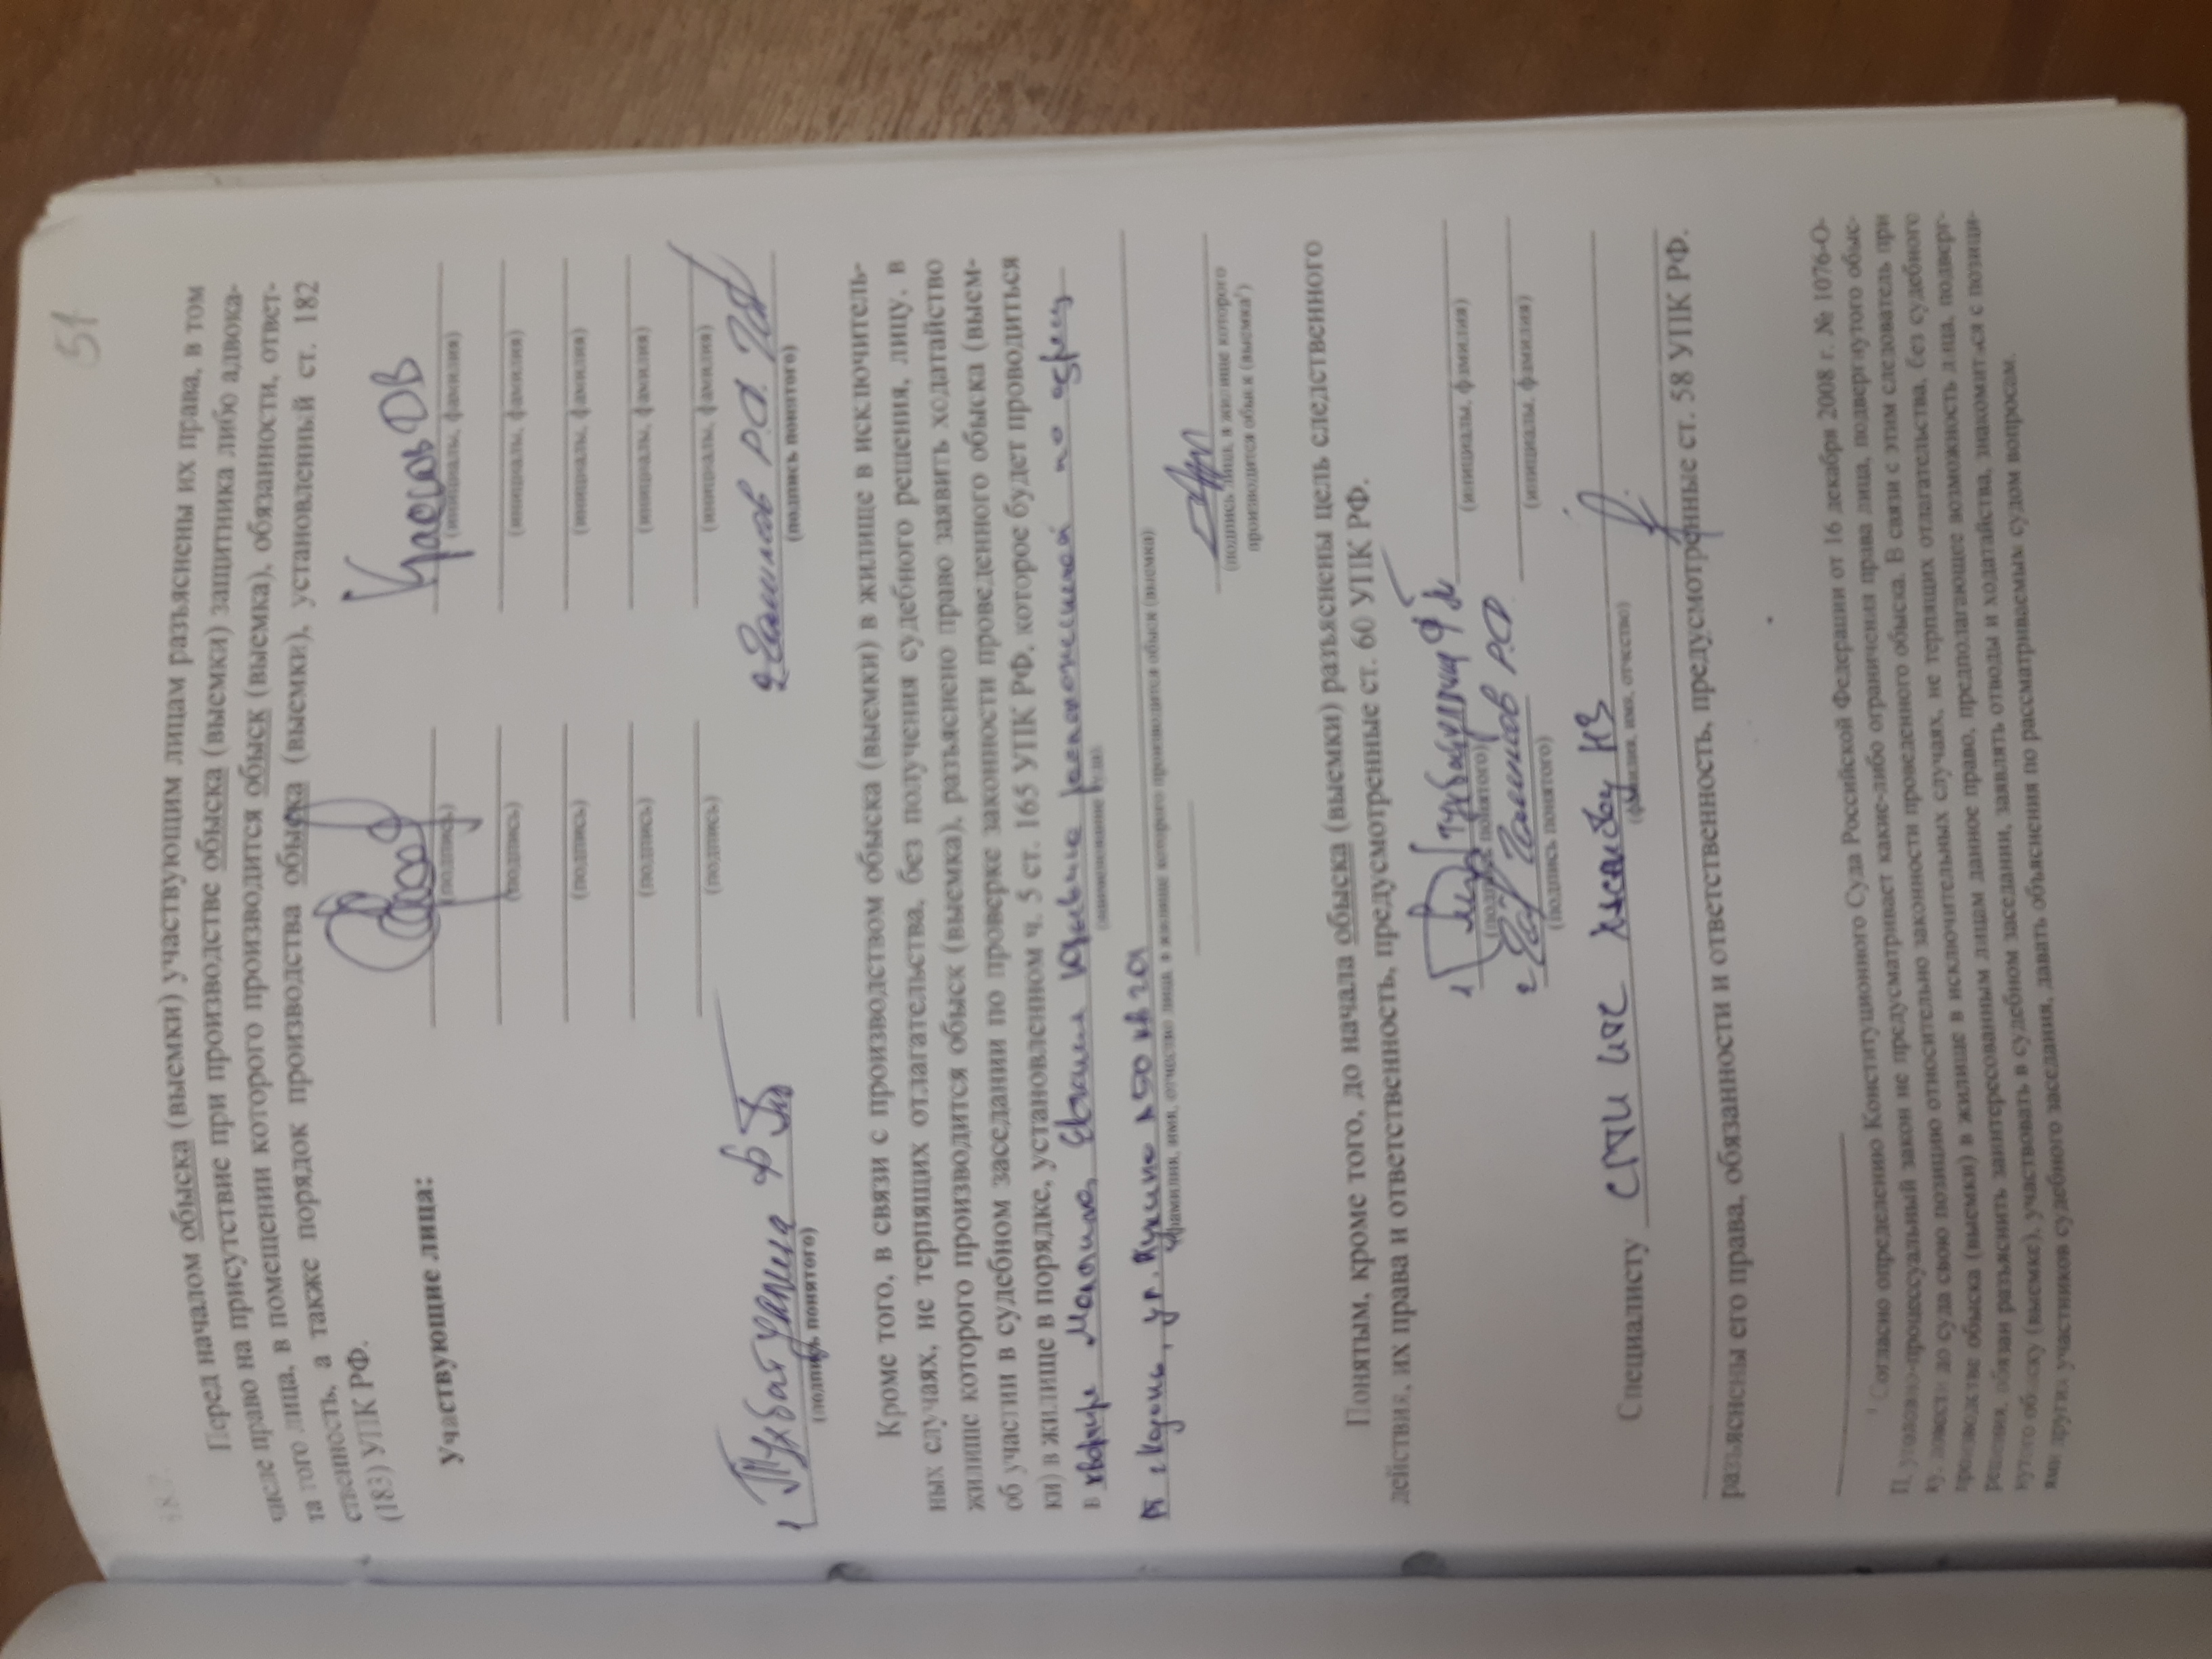 51
Перед началом обыска (выемки) участвующим лицам разъяснены их права, в том
числе право на присутствие при производстве обыска (выемки) защитника либо адвока-
та того лица, в помещении которого производится обыск (выемка), обязанности, ответ-
ственность, а также порядок производства обыска (выемки), установленный ст. 182
(183) УПК РФ.
Участвующие лица:
ДВ
(подпись) (инициалы, фамилия)
(подпись) (инициалы, фамилия)
(подпись) (инициалы, фамилия)
(подпись) (инициалы, фамилия)
(подпись) (инициалы, фамилия)
1 Тухбатуллина Ф 2 Р.Ф.
(подпись понятого) (подпись понятого)
Кроме того, в связи с производством обыска (выемки) в жилище в исключитель-
ных случаях, не терпящих отлагательства, без получения судебного решения, лицу, в
жилище которого производится обыск (выемка), разъяснено право заявить ходатайство
об участии в судебном заседании по проверке законности проведенного обыска (выем-
ки) в жилище в порядке, установленном ч. 5 ст. 165 УПК РФ, которое будет проводиться
в квартире Юрьевича расположенной по адресу
(наименование суда)
г Казань, ул. 50 кв 201
(фамилия, имя, отчество лица, в жилище которого производится обыск (выемка)
(подпись лица, в жилище которого
производится обыск (выемка¹)
Понятым, кроме того, до начала обыска (выемки) разъяснены цель следственного
действия, их права и ответственность, предусмотренные ст. 60 УПК РФ.
1 Тухбатуллина Ф
(подпись понятого) (инициалы, фамилия)
2 Р.Ф.
(подпись понятого) (инициалы, фамилия)
Специалисту НЗ
(фамилия, имя, отчество)
разъяснены его права, обязанности и ответственность, предусмотренные ст. 58 УПК РФ.
¹ Согласно определению Конституционного Суда Российской Федерации от 16 декабря 2008 г. № 1076-О-
П, уголовно-процессуальный закон не предусматривает какие-либо ограничения права лица, подвергнутого обыс-
ку, довести до суда свою позицию относительно законности проведенного обыска. В связи с этим следователь при
производстве обыска (выемки) в жилище в исключительных случаях, не терпящих отлагательства, без судебного
решения, обязан разъяснить заинтересованным лицам данное право, предполагающее возможность лица, подверг-
нутого обыску (выемке), участвовать в судебном заседании, заявлять отводы и ходатайства, знакомиться с позици-
ями других участников судебного заседания, давать объяснения по рассматриваемым судом вопросам.